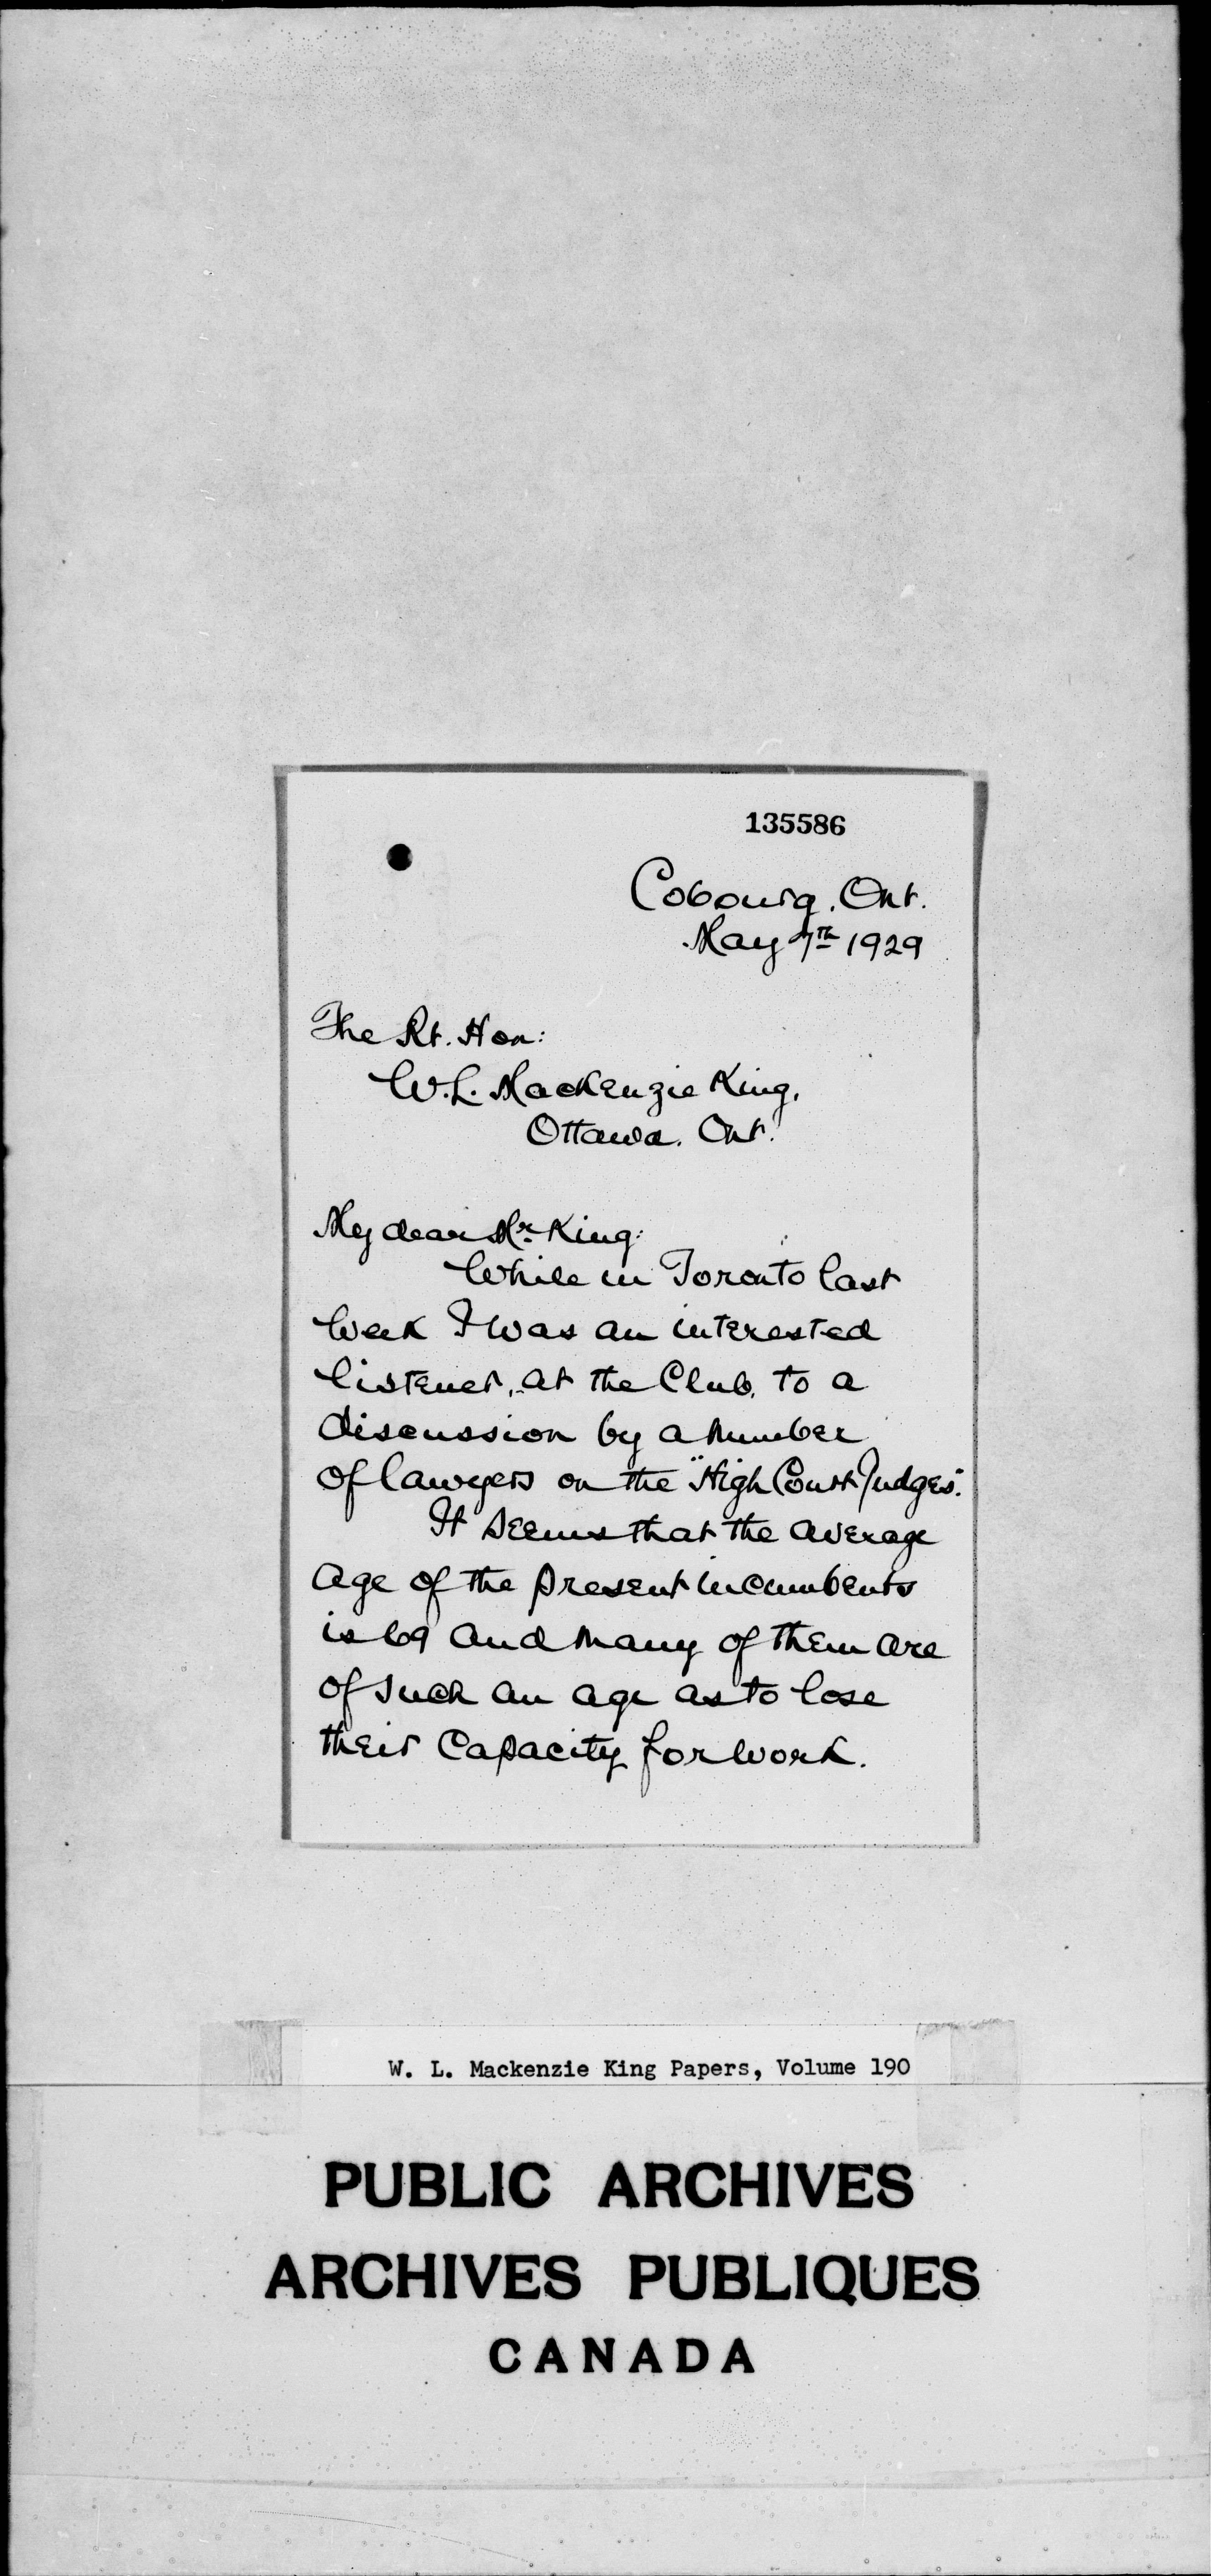 135586
Cobourg, Ont.
May 7th 1929
The Rt. Hon:
W.L. Mackenzie King,
Ottawa. Ont.
My dear Mr. King:
While in Toronto last
week I was an interested
listener, at the Club, to a
discussion by a number
of lawyers on the "High Court Judges".
It seems that the average
age of the present incumbents
is 69 and many of them are
of such an age as to lose
their capacity for work.
W. L. Mackenzie King Papers, Volume 190
PUBLIC ARCHIVES
ARCHIVES PUBLIQUES
CANADA